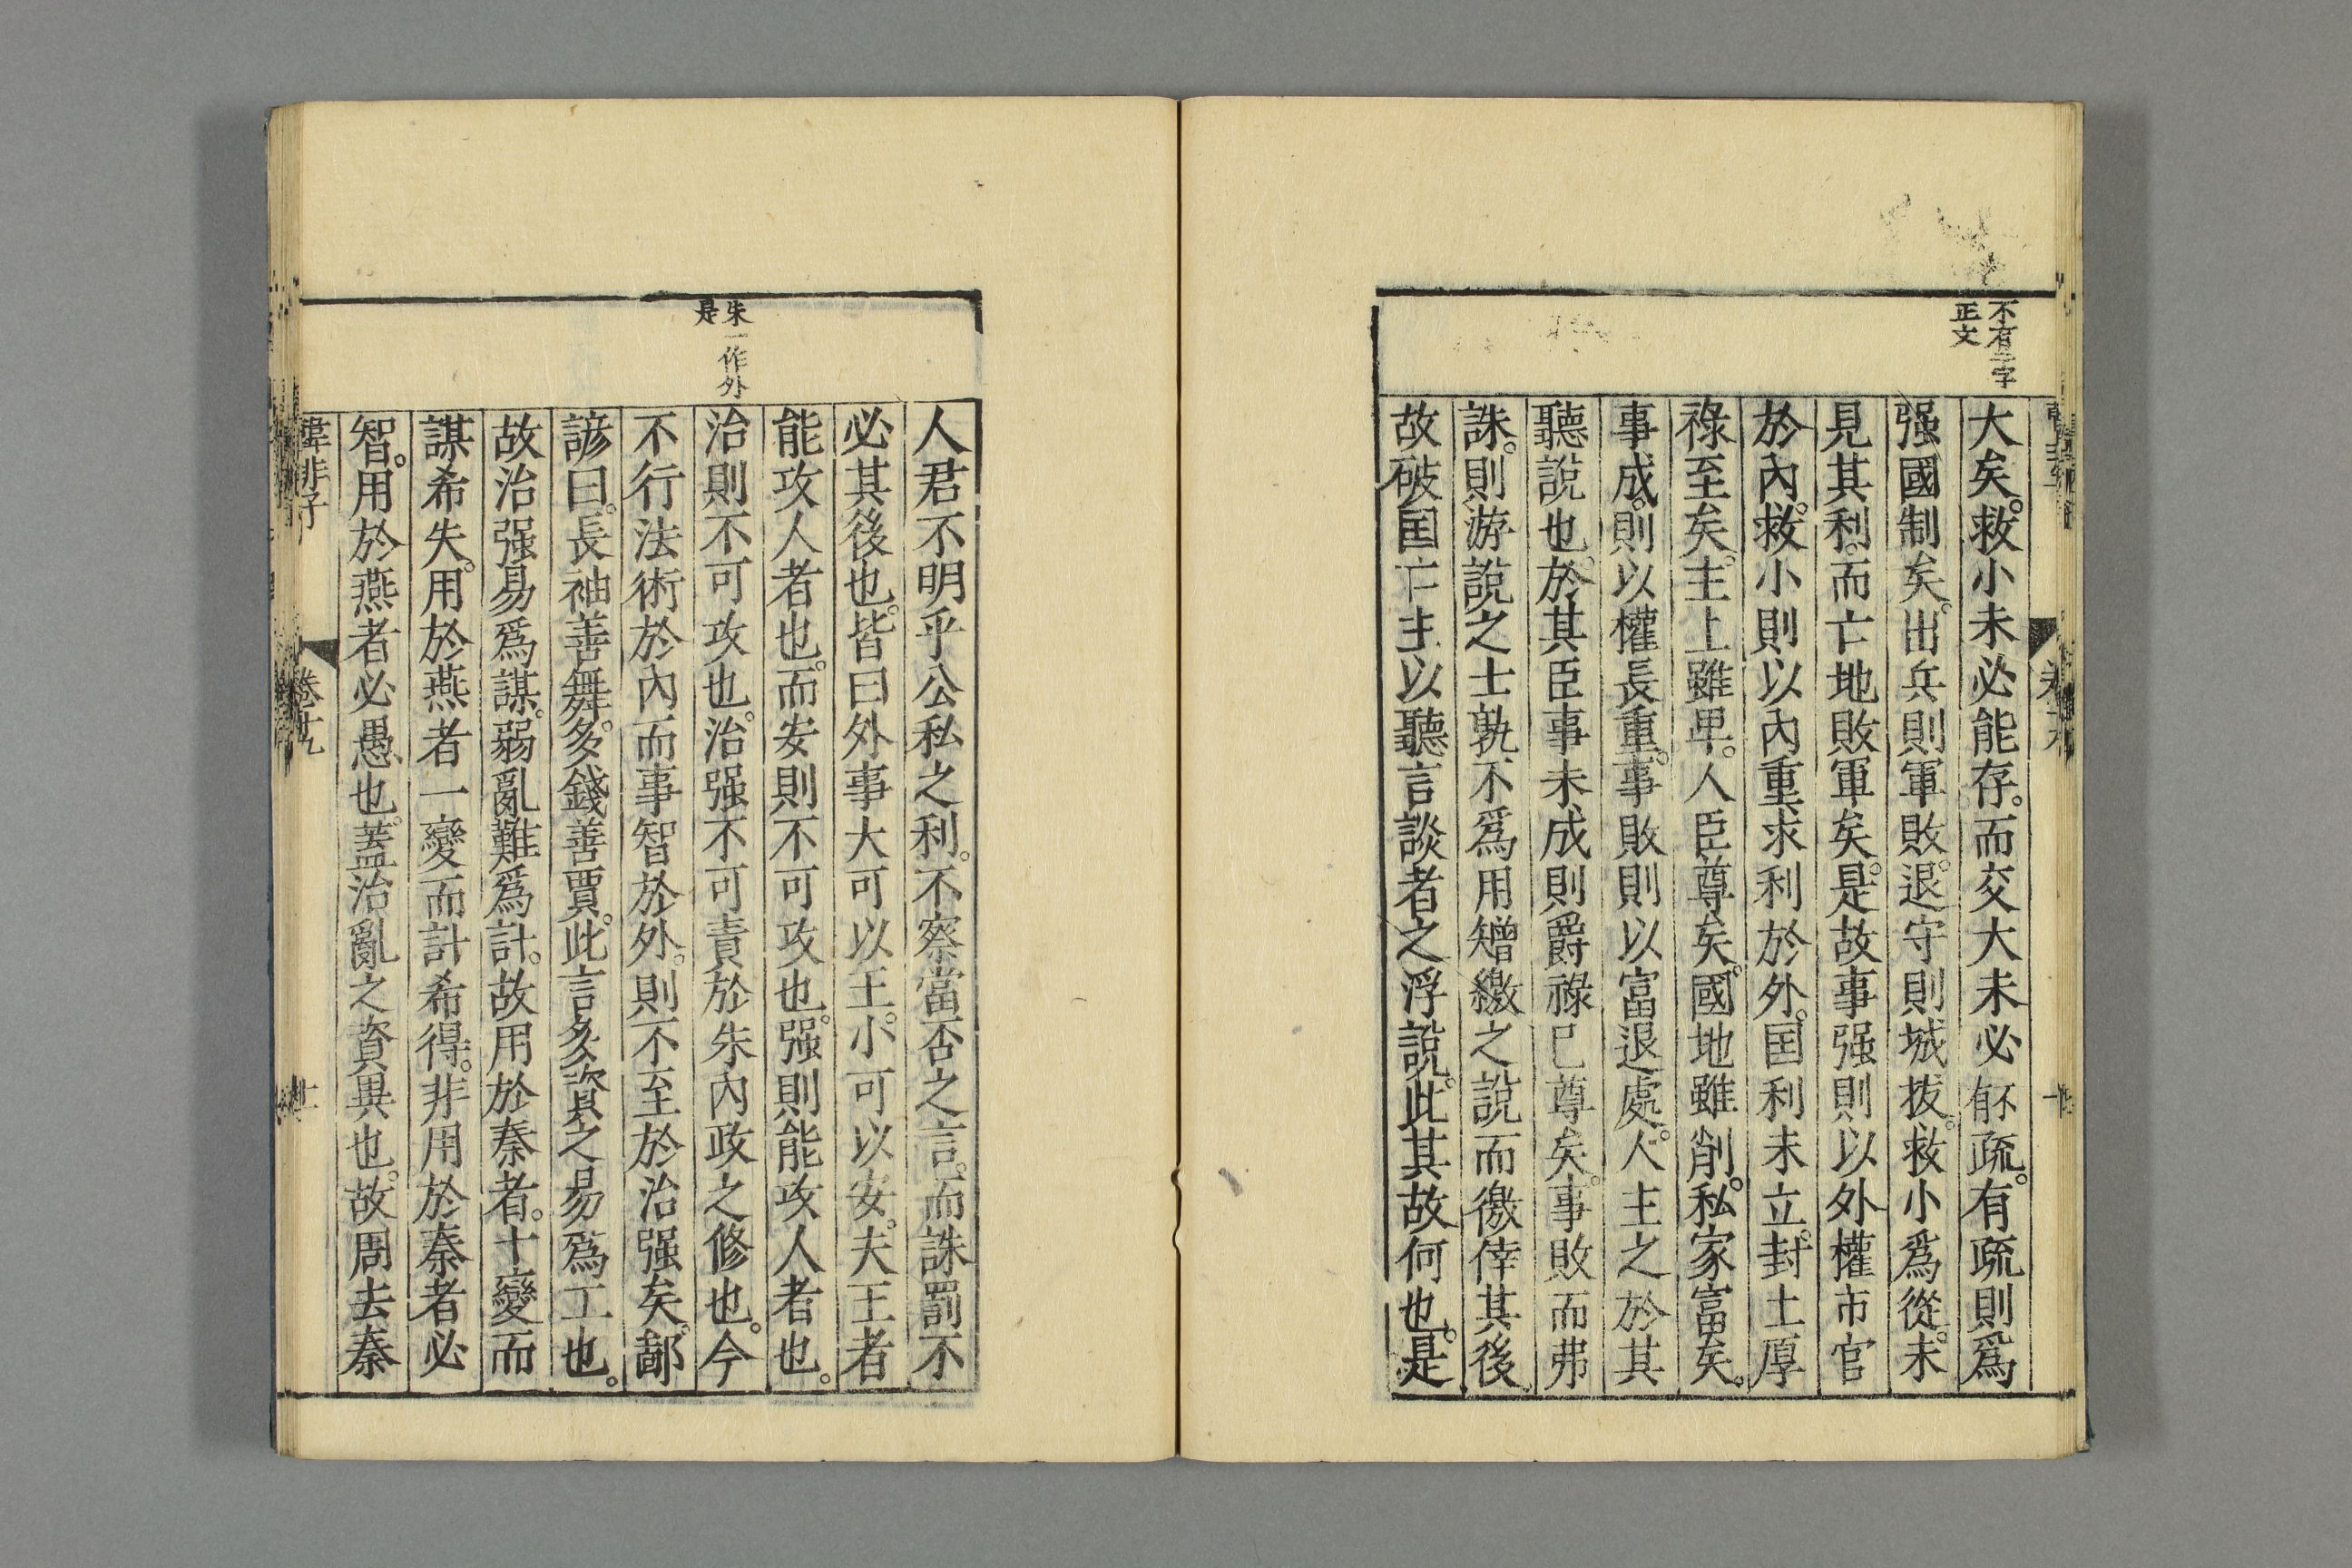 不有二字
正文
大矣。救小未必能存。而交大未必不有疏。有疏則爲
强國制矣。出兵則軍敗。退守則城拔。救小爲從。未
見其利。而亡地敗軍矣。是故事强則以外權市官
於內。救小則以內重求利於外。国利未立。封土厚
祿至矣。主上雖卑。人臣尊矣。國地雖削。私家富矣。
事成。則以權長重。事敗則以富退處。人主之於其
聽說也。於其臣事未成則爵祿已尊矣。事敗而弗
誅。則游說之士孰不爲用矰繳之說而徼倖其後
故破国亡主以聽言談者之浮說。此其故何也。是
朱一作外
是
人君不明乎公私之利。不察當否之言。而誅罰不
必其後也。皆曰外事大可以王。小可以安。夫王者
能攻人者也。而安則不可攻也。强則能攻人者也。
治則不可攻也。治强不可責於朱內政之修也。今
不行法術於內而事智於外。則不至於治强矣。鄙
諺曰。長袖善舞。多錢善賈。此言多資之易爲工也。
故治强易爲謀。弱亂難爲計。故用於秦者。十變而
謀希失。用於燕者一變而計希得。非用於秦者必
智。用於燕者必愚也。蓋治亂之資異也。故周去秦
韓非子 卷十九